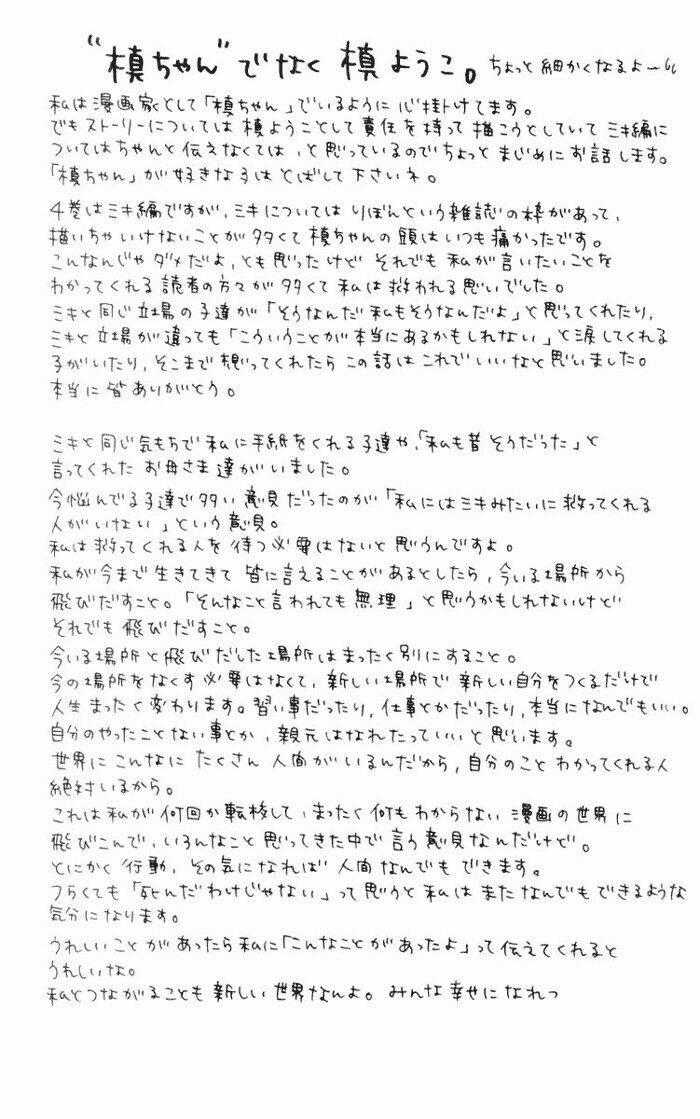 “槙ちゃん”でなく 槙ようこ。 ちょっと細かくなるよー
私は漫画家として「槙ちゃん」でいるように心掛けてます。
でもストーリーについては 槙ようことして責任を持って描こうとしていて ミキ編に
ついてはちゃんと伝えなくては、と思っているのでちょっとまじめにお話します。
「槙ちゃん」が好きな子はとばして下さいネ。
4巻はミキ編ですが、ミキについては りぼんという雑誌の枠があって、
描いちゃいけないことが多くて槙ちゃんの頭はいつも痛かったです。
こんなんじゃダメだよ、とも思ったけど それでも 私が言いたいことを
わかってくれる読者の方々が多くて私は救われる思いでした。
ミキと同じ立場の子達が「そうなんだ私もそうなんだよ」と思ってくれたり、
ミキと立場が違っても「こういうことが本当にあるかもしれない」と涙してくれる
子がいたり、そこまで想ってくれたら この話はこれでいいなと思いました。
本当に皆ありがとう。
ミキと同じ気もちで私に手紙をくれる子達や、「私も昔そうだった」と
言ってくれた お母さま達がいました。
今悩んでる子達で多い意見だったのが「私にはミキみたいに救ってくれる
人がいない」という意見。
私は救ってくれる人を待つ必要はないと思うんですよ。
私が今まで生きてきて 皆に言えることがあるとしたら、今いる場所から
飛びだすこと。「そんなこと言われても無理」と思うかもしれないけど
それでも飛びだすこと。
今いる場所と飛びだした場所はまったく別にすること。
今の場所をなくす必要はなくて、新しい場所で新しい自分をつくるだけで
人生まったく変わります。習い事だったり、仕事とかだったり、本当になんでもいい。
自分のやったことない事とか、親元はなれたっていいと思います。
世界にこんなにたくさん 人間がいるんだから、自分のことわかってくれる人
絶対いるから。
これは私が何回か転校して、まったく何もわからない漫画の世界に
飛びこんで、いろんなこと思ってきた中で言う意見なんだけど。
とにかく行動、その気になれば人間なんでもできます。
つらくても「死んだわけじゃない」って思うと私はまたなんでもできるような
気分になります。
うれしいことがあったら私に「こんなことがあったよ」って伝えてくれると
うれしいな。
私とつながることも新しい世界なんよ。みんな幸せになれっ